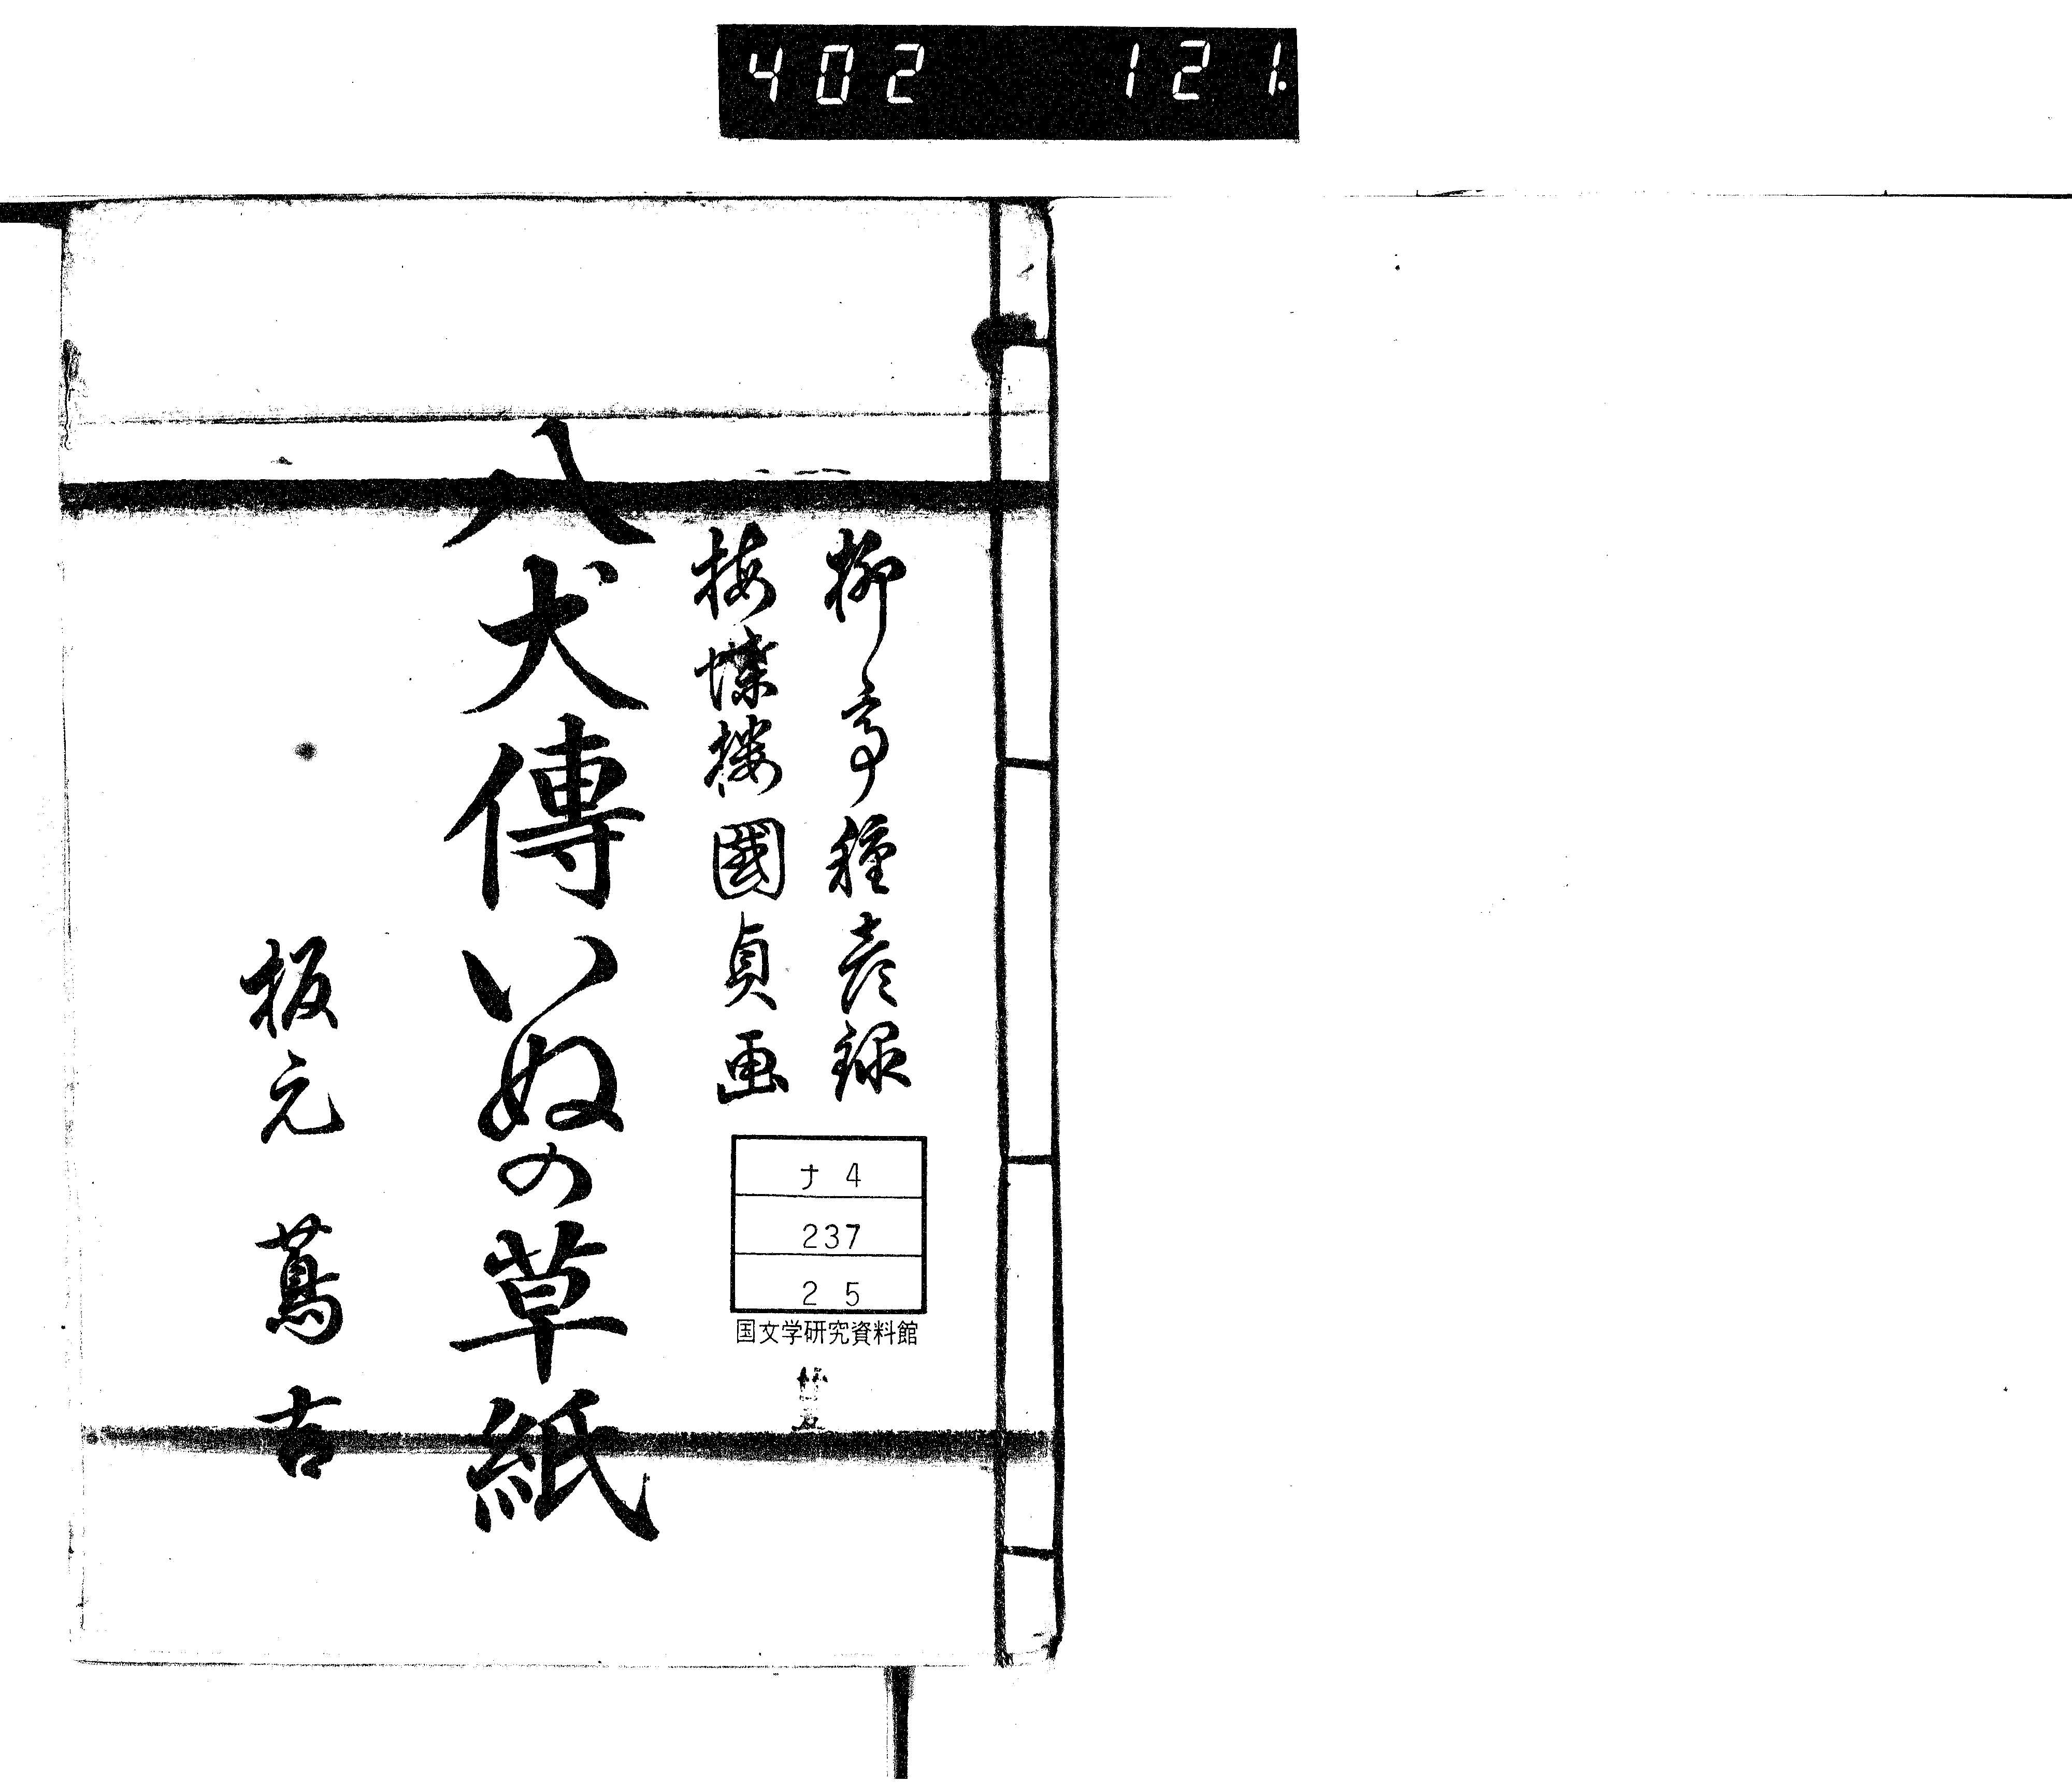 402 121.
柳亭種彦録
梅蝶楼國貞画
八犬傳いぬの草紙
板元 蔦吉
ナ 4
237
2 5
国文学研究資料館